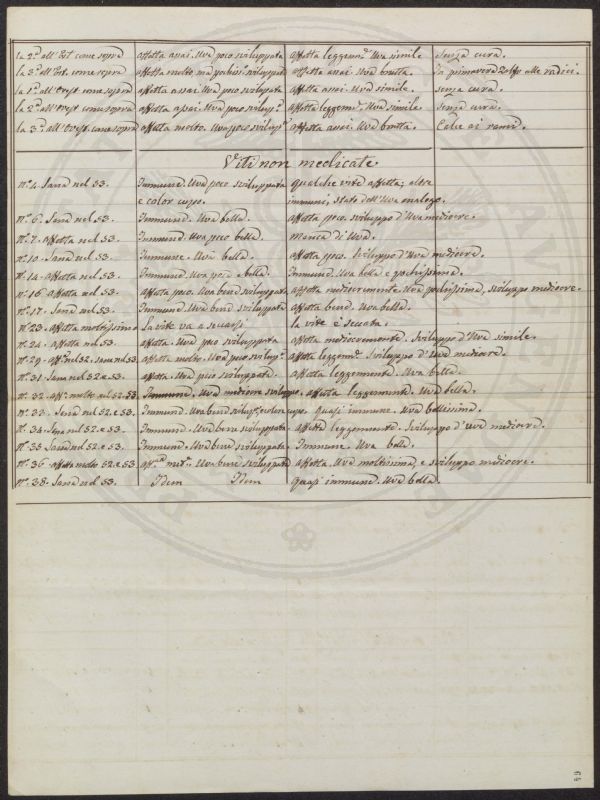 la 2ª all'Est come sopra affetta assai. Uva poco sviluppata affetta leggerm.e Uva simile Senza cura.
la 3ª all'Est. come sopra affetta molto, ma sviluppata affetta assai. Uva brutta. In primavera alle radici.
la 1ª all'Ovest come sopra affetta assai. Uva poco sviluppata affetta assai. Uva simile. senza cura.
la 2ª all'Ovest come sopra affetta assai. Uva poco svilupp.a affetta leggerm.e Uva simile. Senza cura.
la 3ª all'Ovest come sopra affetta molto. Uva poco svilupp.a affetta assai. Uva brutta. Calce ai rami.
Viti non medicate
nº. 4. Sana nel 53. Immune. Uva poco sviluppata qualche vite affetta; altre
e color cupo. immuni, stato dell'Uva analogo.
nº. 6. Sana nel 53. Immune. Uva bella. affetta poco. sviluppo d'Uva mediocre.
nº. 7. affetta nel 53. Immune. Uva poco bella. Manca di Uva.
nº. 10. Sana nel 53. Immune. Uva bella. affetta poco. Sviluppo d'Uva mediocre.
nº. 14. affetta nel 53. Immune. Uva poco bella. Immune. Uva bella e pochissima.
nº. 16. affetta nel 53. affetta poco. Uva bene sviluppata affetta mediocremente. Uva pochissima, sviluppo mediocre.
nº. 17. Sana nel 53. Immune. Uva bene sviluppata affetta bene. Uva bella.
nº. 23. affetta moltissimo La vite va a seccarsi. la vite è seccata.
nº. 24. affetta nel 53. affetta. Uva poco sviluppata affetta mediocremente. Sviluppo d'Uva simile.
nº. 29. aff.a nel 52. sana nel 53. affetta molto. Uva poco svilupp.a affetta leggerm.e Sviluppo d'Uva mediocre.
nº. 31. Sana nel 52 e 53. affetta. Uva poco sviluppata. affetta leggermente. Uva bella.
nº. 32. aff.a molto nel 52.53. Immune. Uva mediocre sviluppo. affetta leggermente. Uva bella.
nº. 33. Sana nel 52. e 53. Immune. Uva bene svilupp.a color cupo. quasi immune. Uva bellissima.
nº. 34. Sana nel 52. e 53. Immune. Uva bene sviluppata affetta leggermente. Sviluppo d'uva mediocre.
nº. 35. Sana nel 52. e 53. Immune. Uva bene sviluppata Immune. Uva bella.
nº. 36. affetta molto 52. e 53. Uva bene sviluppata affetta. Uva moltissima, e sviluppo mediocre.
nº. 38. Sana nel 53. Idem Idem quasi immune. Uva bella.